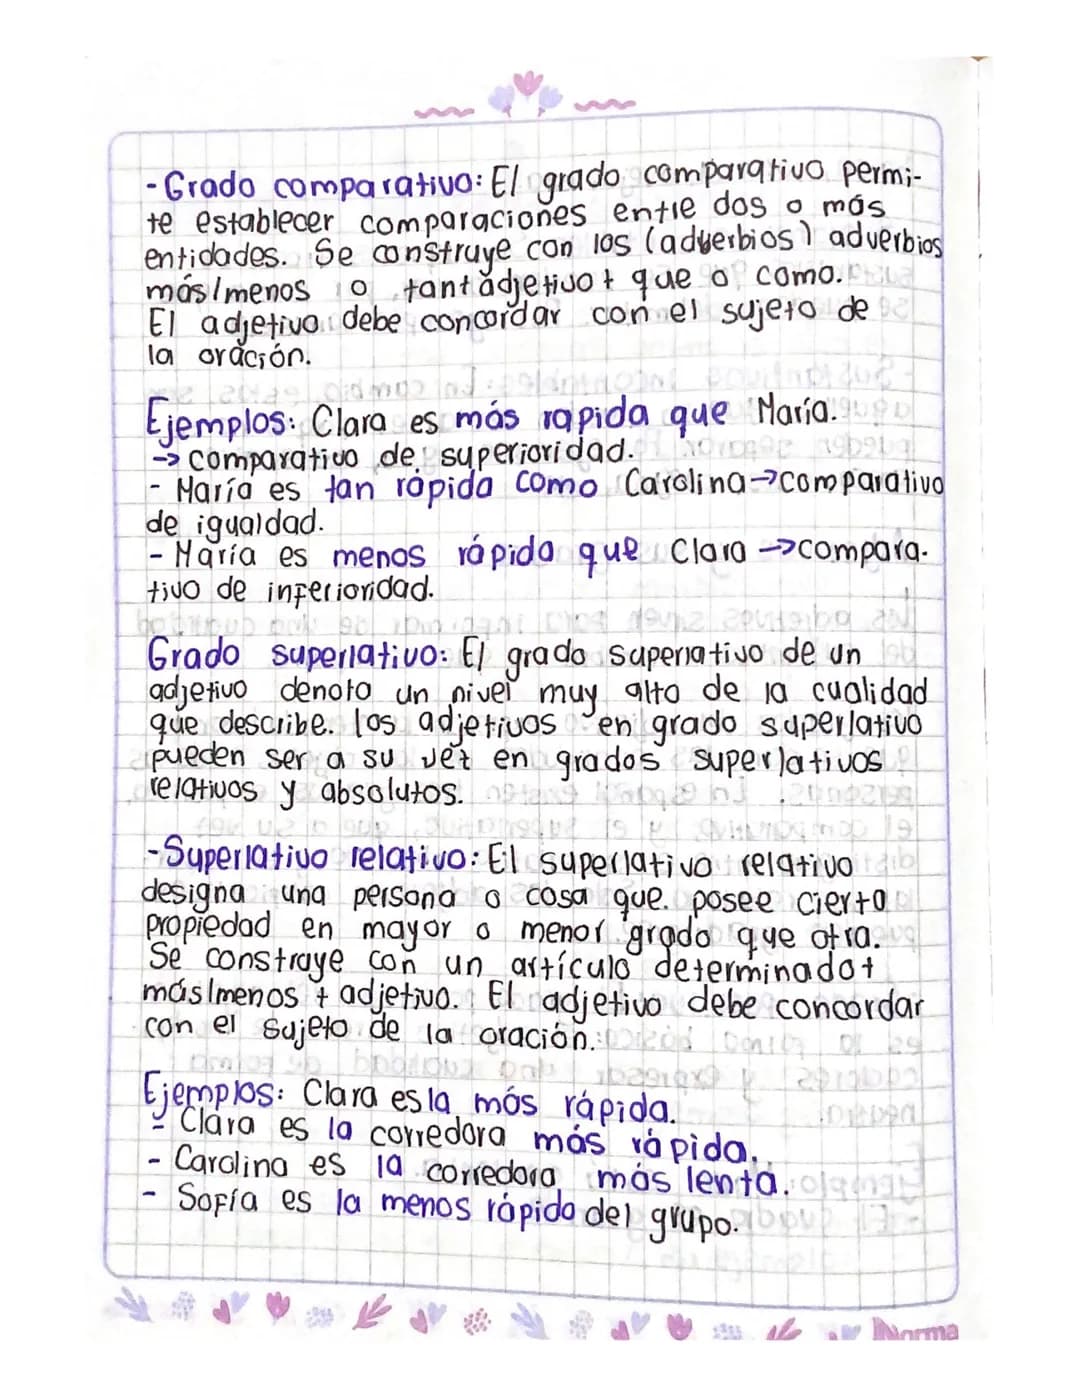 -Grado comparativo: El grado comparativo permi-
te establecer comparaciones entre dos o más
entidades. Se construye con los (adverbios) adverbios
más/menos o tan+adjetivo+ que o como.
El adjetivo debe concordar con el sujeto de
la oración.
Ejemplos: Clara es más rapida que María.
-> comparativo de superioridad.
- María es tan rápida como Carolina->comparativo
de igualdad.
- María es menos rápida que Clara ->compara-
tivo de inferioridad.
Grado superlativo: El grado superlativo de un
adjetivo denota un nivel muy alto de la cualidad
que describe. los adjetivos en grado superlativo
pueden ser a su vez en grados superlativos
relativos y absolutos.
-Superlativo relativo: El superlativo relativo
designa una persona o cosa que posee cierta
propiedad en mayor o menor grado que otra.
Se construye con un artículo determinado+
más/menos + adjetivo. El adjetivo debe concordar
con el sujeto de la oración.
Ejemplos: Clara es la más rápida.
- Clara es la corredora más rápida.
- Carolina es la corredora más lenta.
- Sofía es la menos rápida del grupo.
Norma